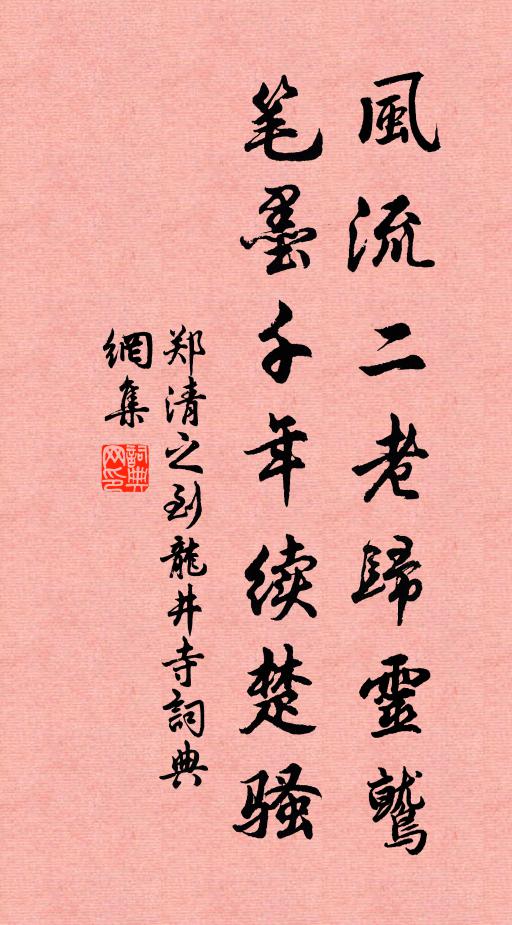 風流二老歸靈鷲
笔墨千年续楚骚
郑清之到龍井寺詞典
網集
詞典網印